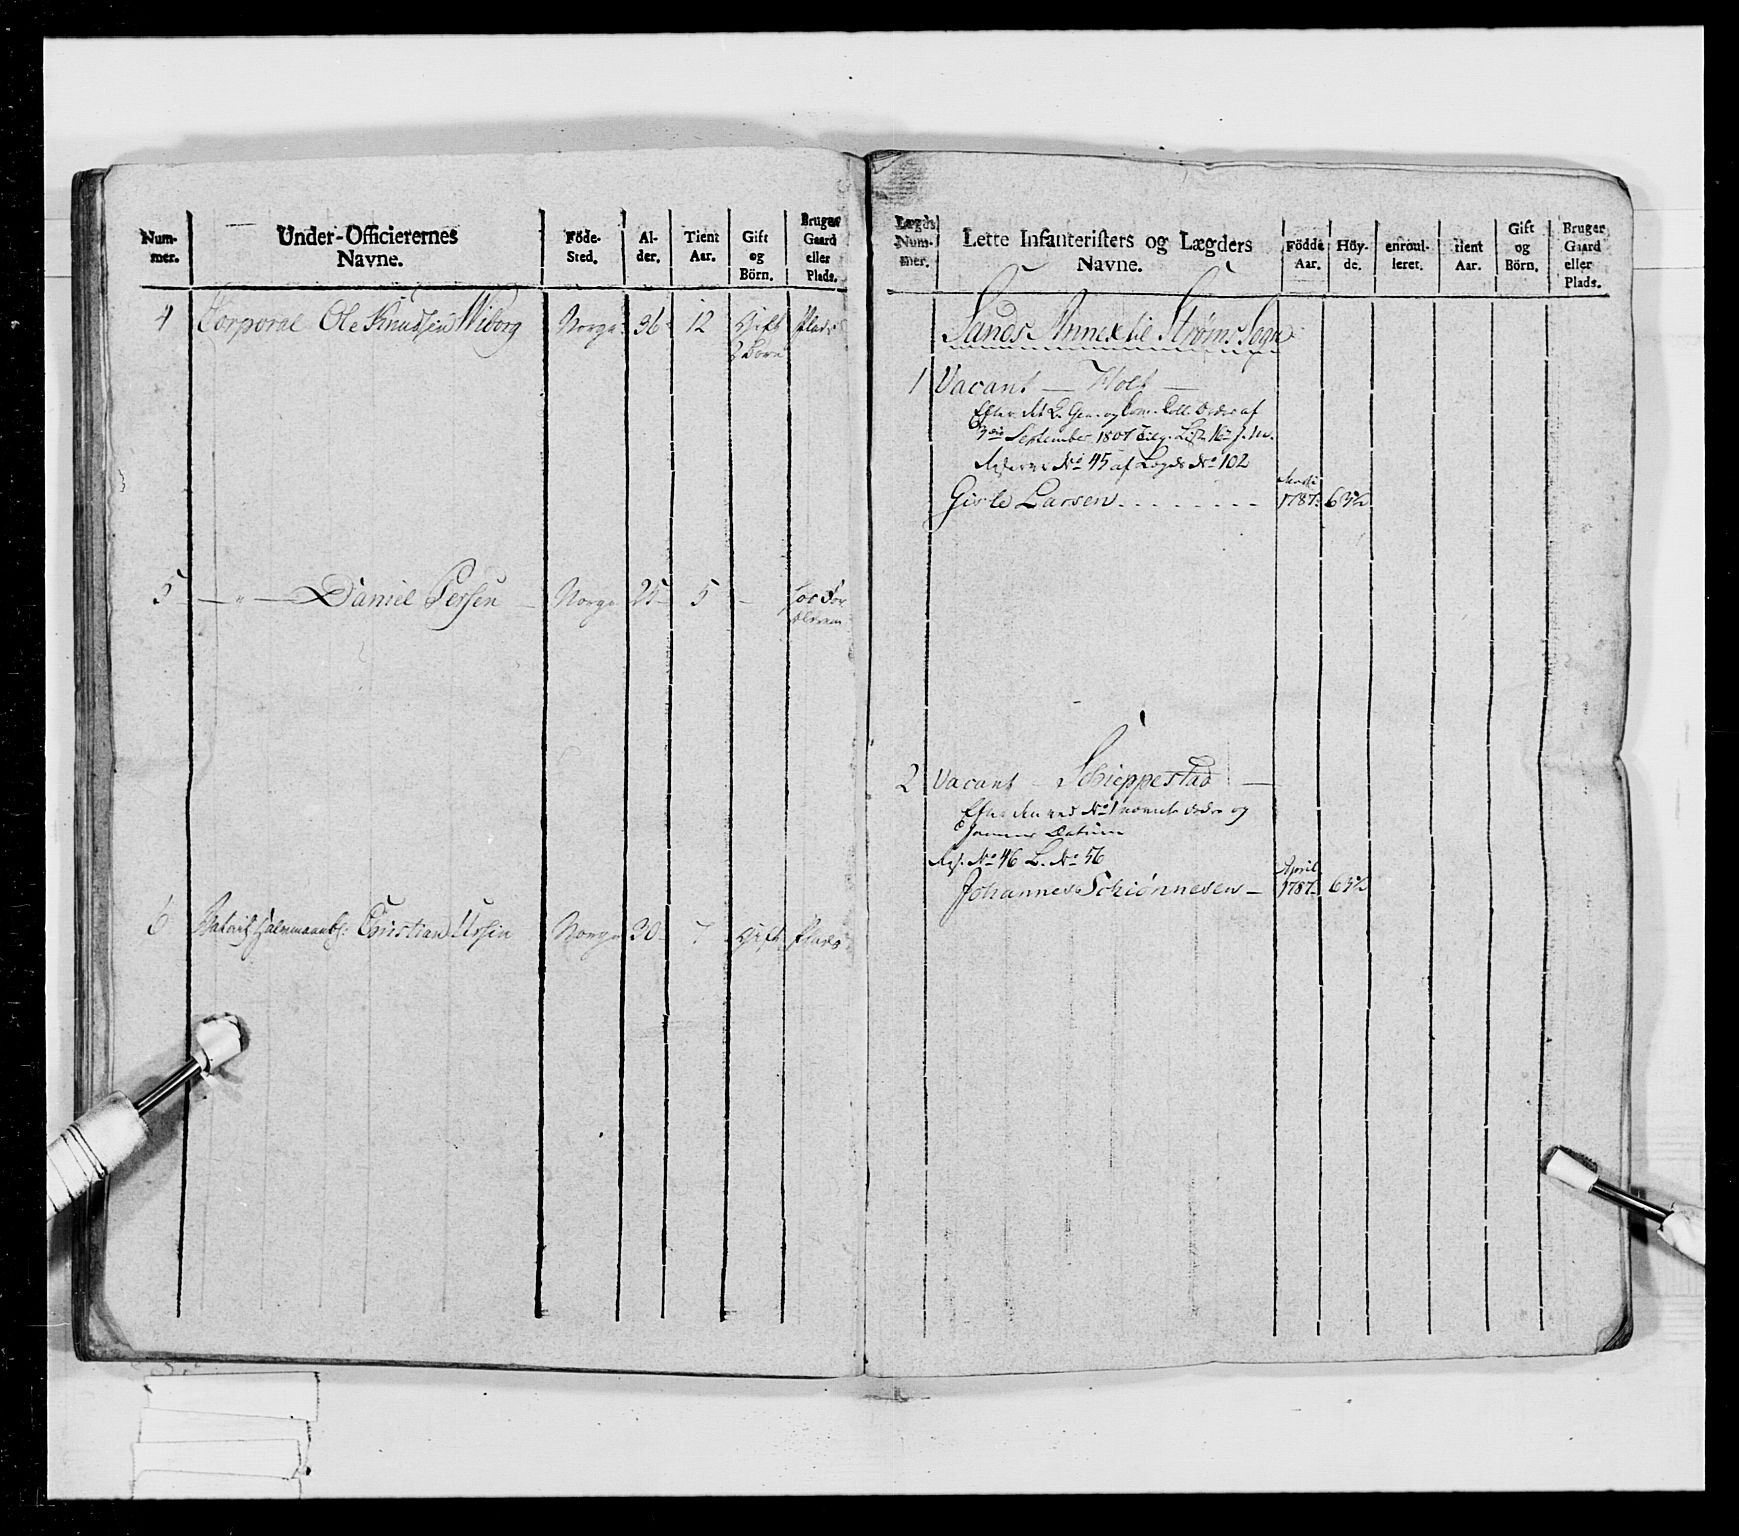 Num-
mer.
Under-Officierernes
Navne.
Föde-
Sted.
Al-
der.
Tient
Aar.
Gift
og
Börn.
Bruger
Gaard
eller
Plads.
4 Corporal Ole Knudsen Wiborg Norge 36 12 Gift Plads
2 Börn
5 — " — Daniel Persen — Norge 25 — 5 — hos For
ældrene
6 Christian Norge 30 7 Gift Plads
Lægds
Num-
mer.
Lette Infanteristers og Lægders
Navne.
Födde
Aar.
Höy-
de.
enroul-
leret.
tient
Aar.
Gift
og
Börn.
Bruger
Gaard
eller
Plads.
Sands Annex til Strøms Sogn
1 Vacant — Holt —
Efter Gen. og Com. Coll. Ordre af
September 1807
No 45 af Lægds No 102
Gisle Larsen 1787. 63½
2 Vacant — Schieppestad —
Efter den ved No 1 nævnte Ordre og
Datum
No 46 L. No 56
April
Johannes Schiønnesen — 1787. 63½